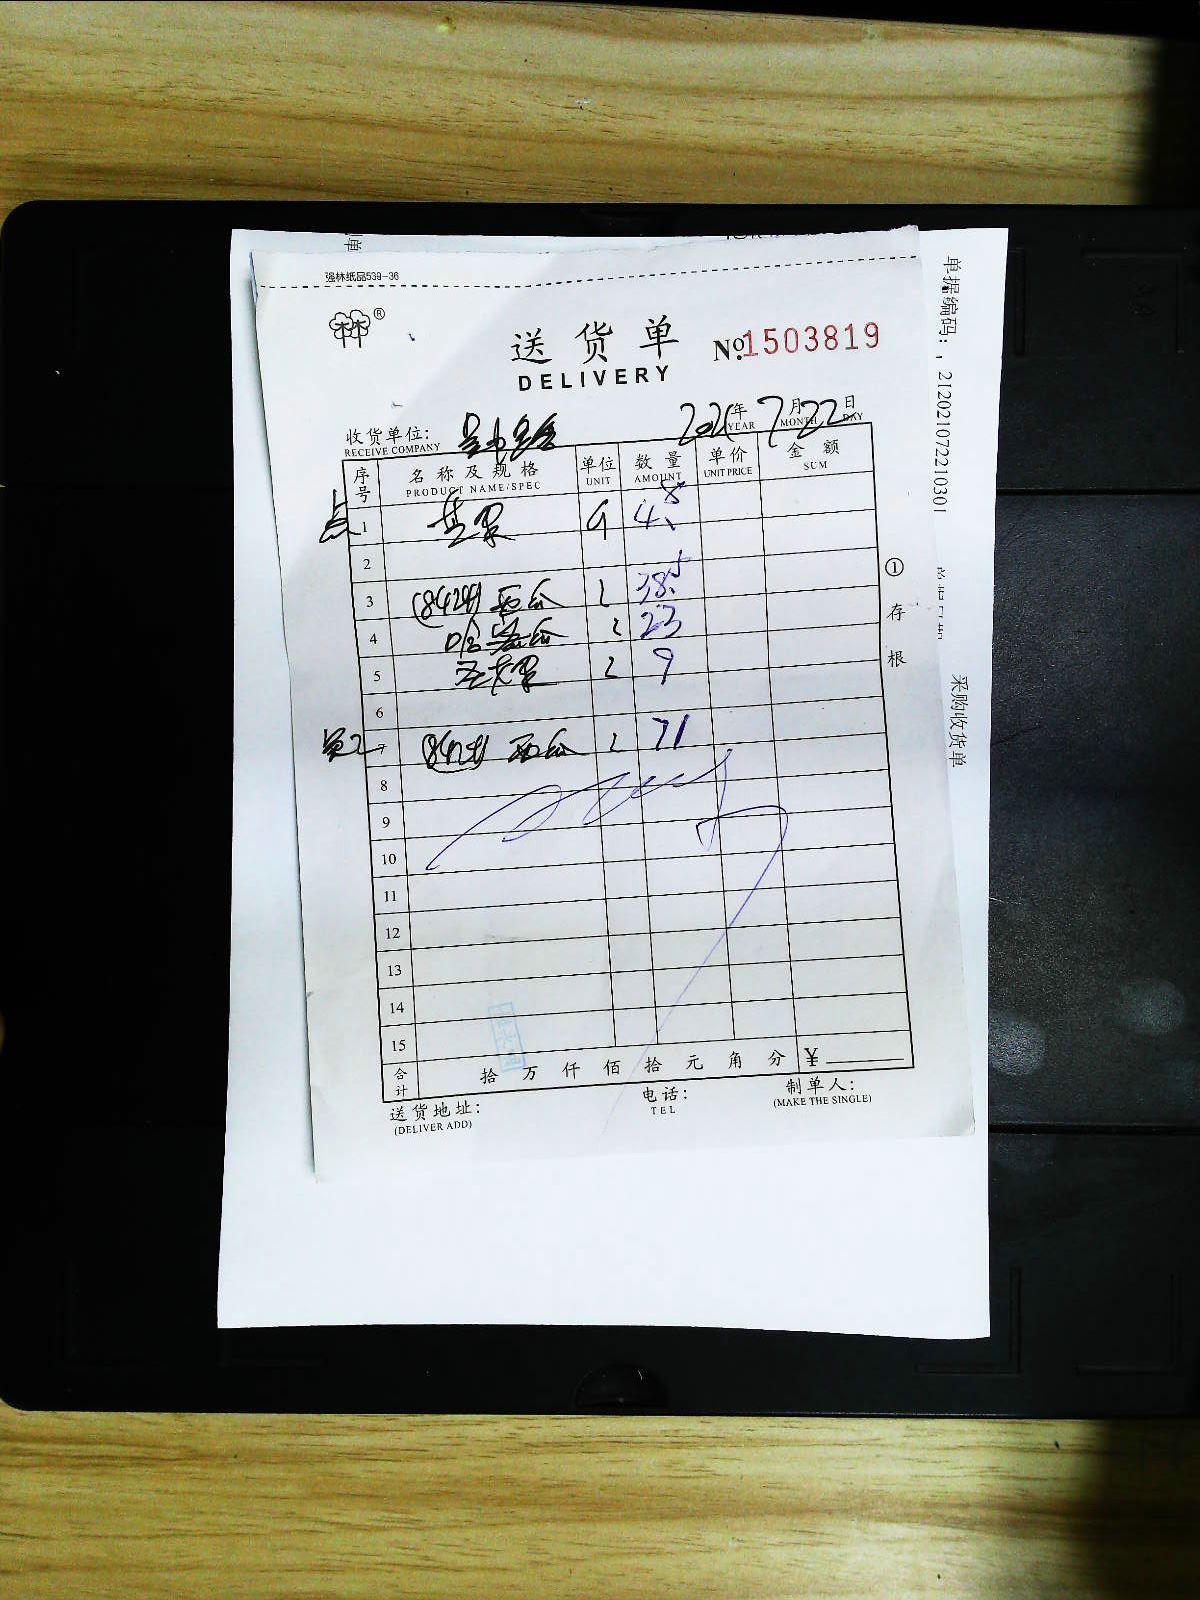 强林纸品539-36
®
送货单
DELIVERY
№1503819
2021年7月22日
YEAR MONTH DAY
收货单位:
RECEIVE COMPANY
序号 名称及规格 单位 数量 单价 金额
PRODUCT NAME/SPEC UNIT AMOUNT UNIT PRICE SUM
点 1
2
3 (8424)西瓜 38.5
4 哈密瓜 23
5 9
6
7 (8424)西瓜 71
8
9
10
11
12
13
14
15
合计 拾 万 仟 佰 拾 元 角 分 ¥
送货地址:
(DELIVER ADD)
电话:
TEL
制单人:
(MAKE THE SINGLE)
①存根
单据编码:,2120210722210301
采购收货单